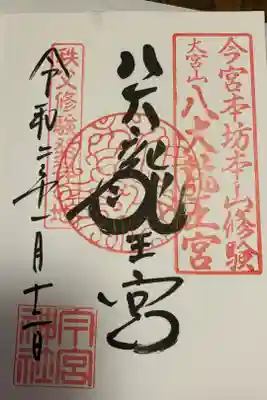 今宮本坊本山修験
大宮山
八大龍王宮
八大龍王宮
秩父修験発祥之地
令和二年一月十二日
今宮神社